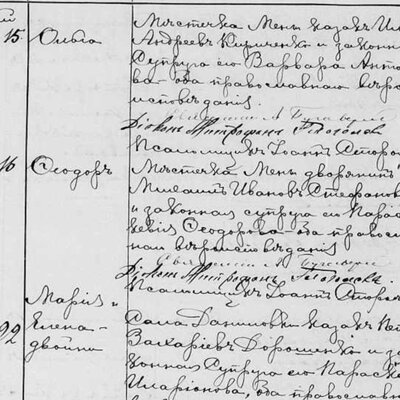 15
Ольга
Мѣстечка Мены казакъ
Андреевъ Кириченко и законн
Супруга его Варвара Анто
ва оба православнаго вѣро
исповѣданія.
Діаконъ Митрофанъ
Псаломщикъ Іоаннъ
16
Ѳеодоръ
Мѣстечка Мены дворянинъ
Михаилъ Ивановъ Стефанов
и законная супруга его Парас
кевія Ѳеодорова оба правосл
наго вѣроисповѣданія
Діаконъ Митрофанъ
Псаломщикъ Іоаннъ
92
Марія и
Елена
двойни
2
Села Даниловки казакъ
Захаріевъ Дорошенко и за
конная Супруга его Параск
Иларіонова, оба православн